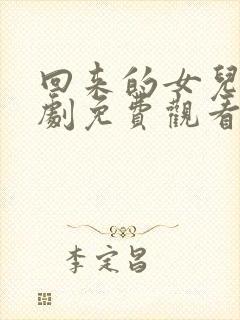 回来的女兒
劇免費觀看
李定昌